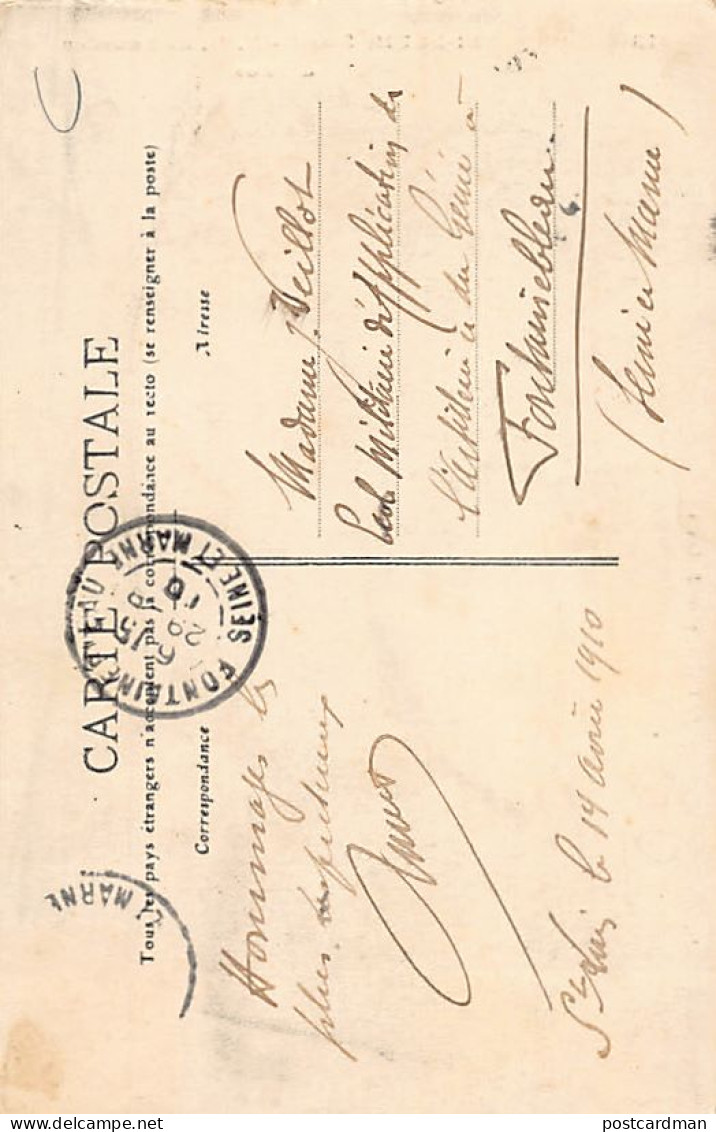 CARTE POSTALE
Tous les pays étrangers n'acceptent pas la correspondance au recto (se renseigner à la poste)
Correspondance
Adresse
Hommages les
plus respectueux
St Louis le 14 Août 1910
Madame Veillot
Ecole Militaire d'Application de
l'Artillerie et du Génie à
Fontainebleau
(Seine et Marne)
FONTAINEBLEAU
SEINE ET MARNE
MARNE
postcardman